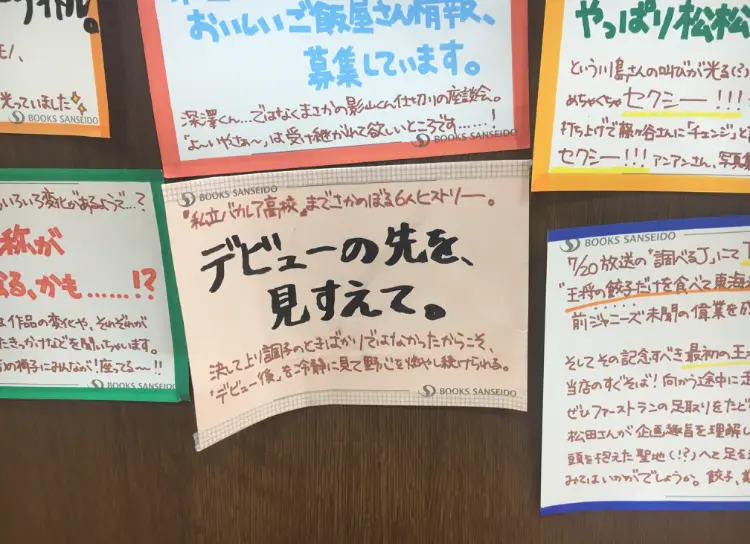 モノ、
光っていました
BOOKS SANSEIDO
おいしいご飯屋さん情報、
募集しています。
深澤くん…ではなくまさかの影山くん仕切りの座談会。
「よ〜いやさぁ〜」は受け継がれて欲しいところです……!
BOOKS SANSEIDO
やっぱり松松
という川島さんの叫びが光る(?)
めちゃくちゃセクシー!!!
打ち上げで藤ヶ谷さんに「チェンジ」と
セクシー!!! アンアンさん、写真集
BOOKS SANSEIDO
いろいろ変化があるようで…?
称が
る、かも……!?
は作品の変化や、それぞれが
たきっかけなどを聞いちゃいます。
の椅子にみんなが!座ってる〜!!
BOOKS SANSEIDO
BOOKS SANSEIDO
『私立バカレア高校』までさかのぼる6人ヒストリー。
デビューの先を、
見すえて。
決して上り調子のときばかりではなかったからこそ、
「デビュー後」を冷静に見て野心を燃やし続けられる。
BOOKS SANSEIDO
BOOKS SANSEIDO
7/20放送の「調べるJ」にて
"王将の餃子だけを食べて東海
前ジャニーズ未聞の偉業を成
そしてその記念すべき最初の王
当店のすぐそば!向かう途中に
ぜひファーストランの足取りをたど
松田さんが企画趣旨を理解し
頭を抱えた聖地(!?)へと足を
みてはいかがでしょうか。餃子、